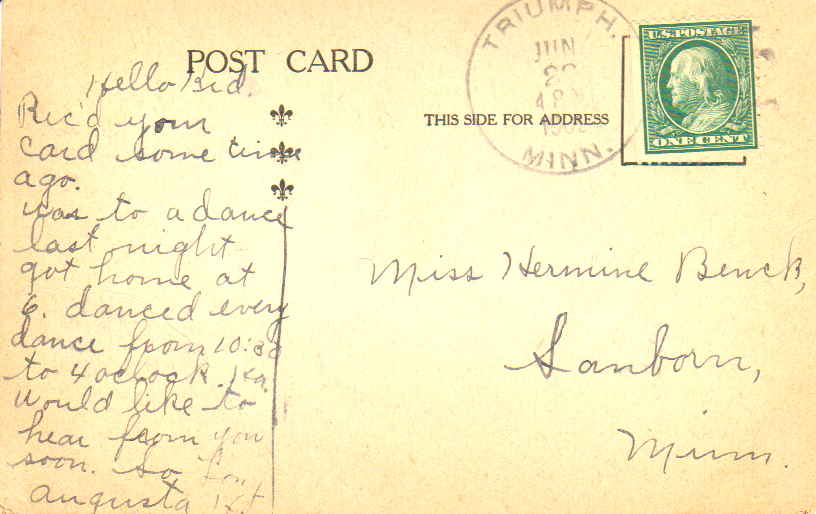 POST CARD
THIS SIDE FOR ADDRESS
TRIUMPH.
JUN
MINN.
U.S. POSTAGE
ONE CENT
Hello Bid.
Rec'd your
card some time
ago.
Was to a dance
last night
got home at
6. danced every
dance from 10:30
to 4 oclock.
Would like to
hear from you
soon. So
Augusta
Miss Hermine Benck,
Sanborn,
Minn.